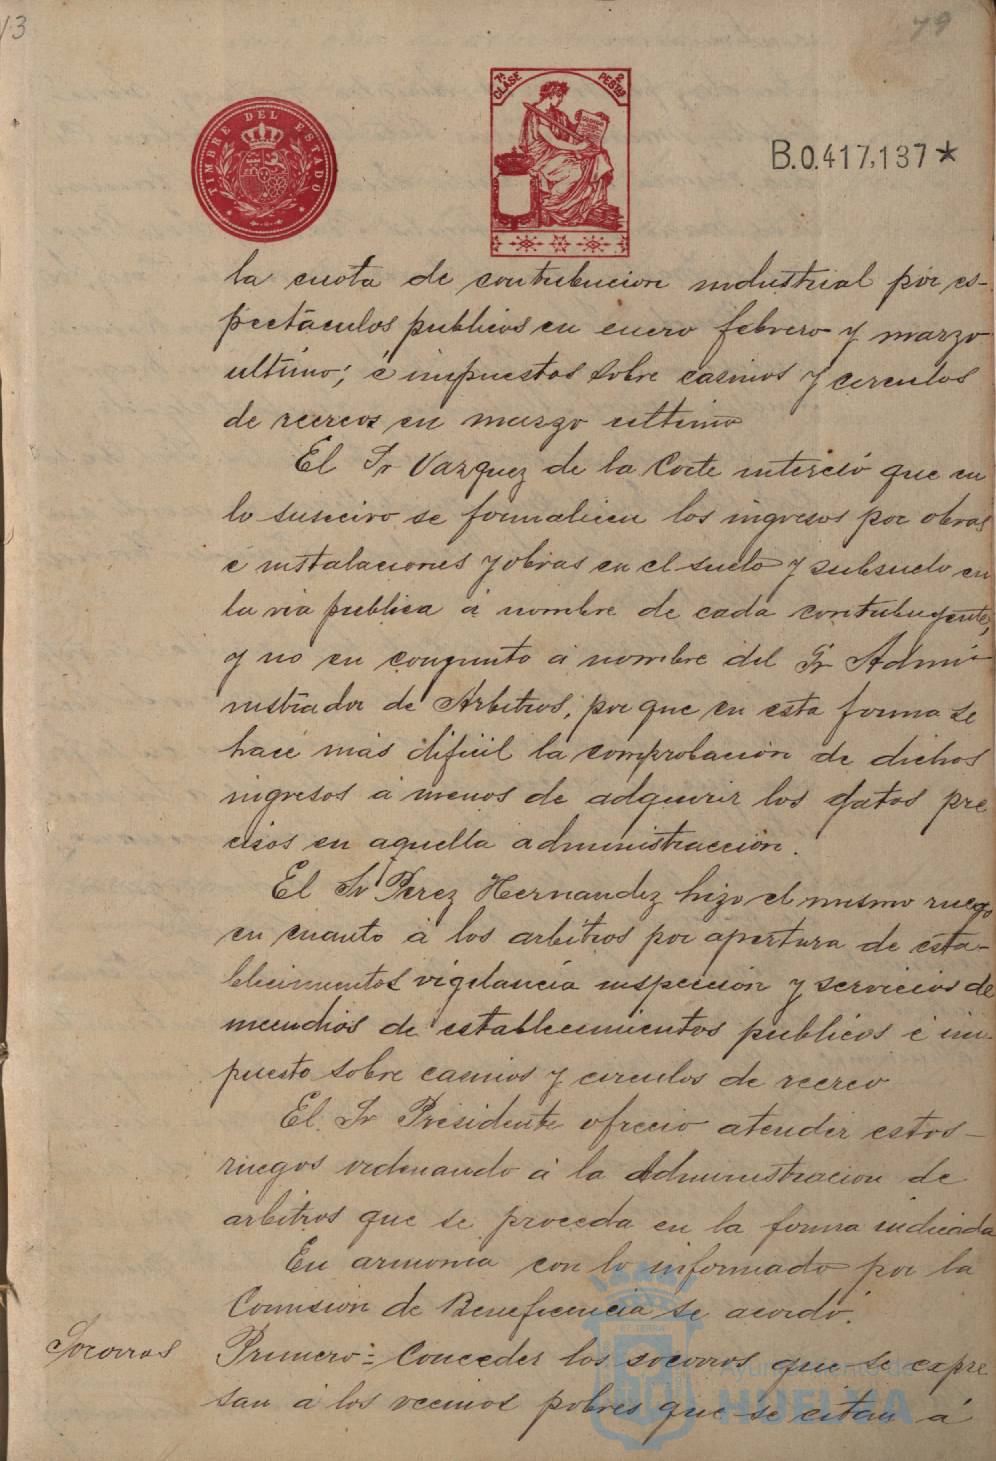 13
79
TIMBRE DEL ESTADO
7ª CLASE
2 PESTAS
B.0.417,137*
la cuota de contribucion industrial por es-
pectáculos publicos en enero febrero y marzo
ultimo; é impuestos sobre casinos y circulos
de recreos en marzo ultimo
El Sr Vazquez de la Corte interesó que en
lo sucesivo se formalicen los ingresos por obras
é instalaciones y obras en el suelo y subsuelo en
la via publica á nombre de cada contribuyente,
y no en conjunto á nombre del Sr Admi-
nistrador de Arbitros, por que en esta forma se
hace más dificil la comprobación de dichos
ingresos á menos de adquirir los datos pre
cisos en aquella administracción.
El Sr Perez Hernandez hizo el mismo ruego
en cuanto á los arbitros por apertura de esta-
blecimientos vigilancia inspección y servicios de
incendios de establecimientos publicos é im-
puesto sobre casinos y circulos de recreo
El Sr Presidente ofrecio atender estos-
ruegos ordenando á la Administracion de
arbitros que se proceda en la forma indicada
En armonia con lo informado por la
Comision de Beneficencia se acordó.
Socorros
Primero:= Conceder los socorros que se expre
san á los vecinos pobres que se citan á
Ayuntamiento de
HUELVA